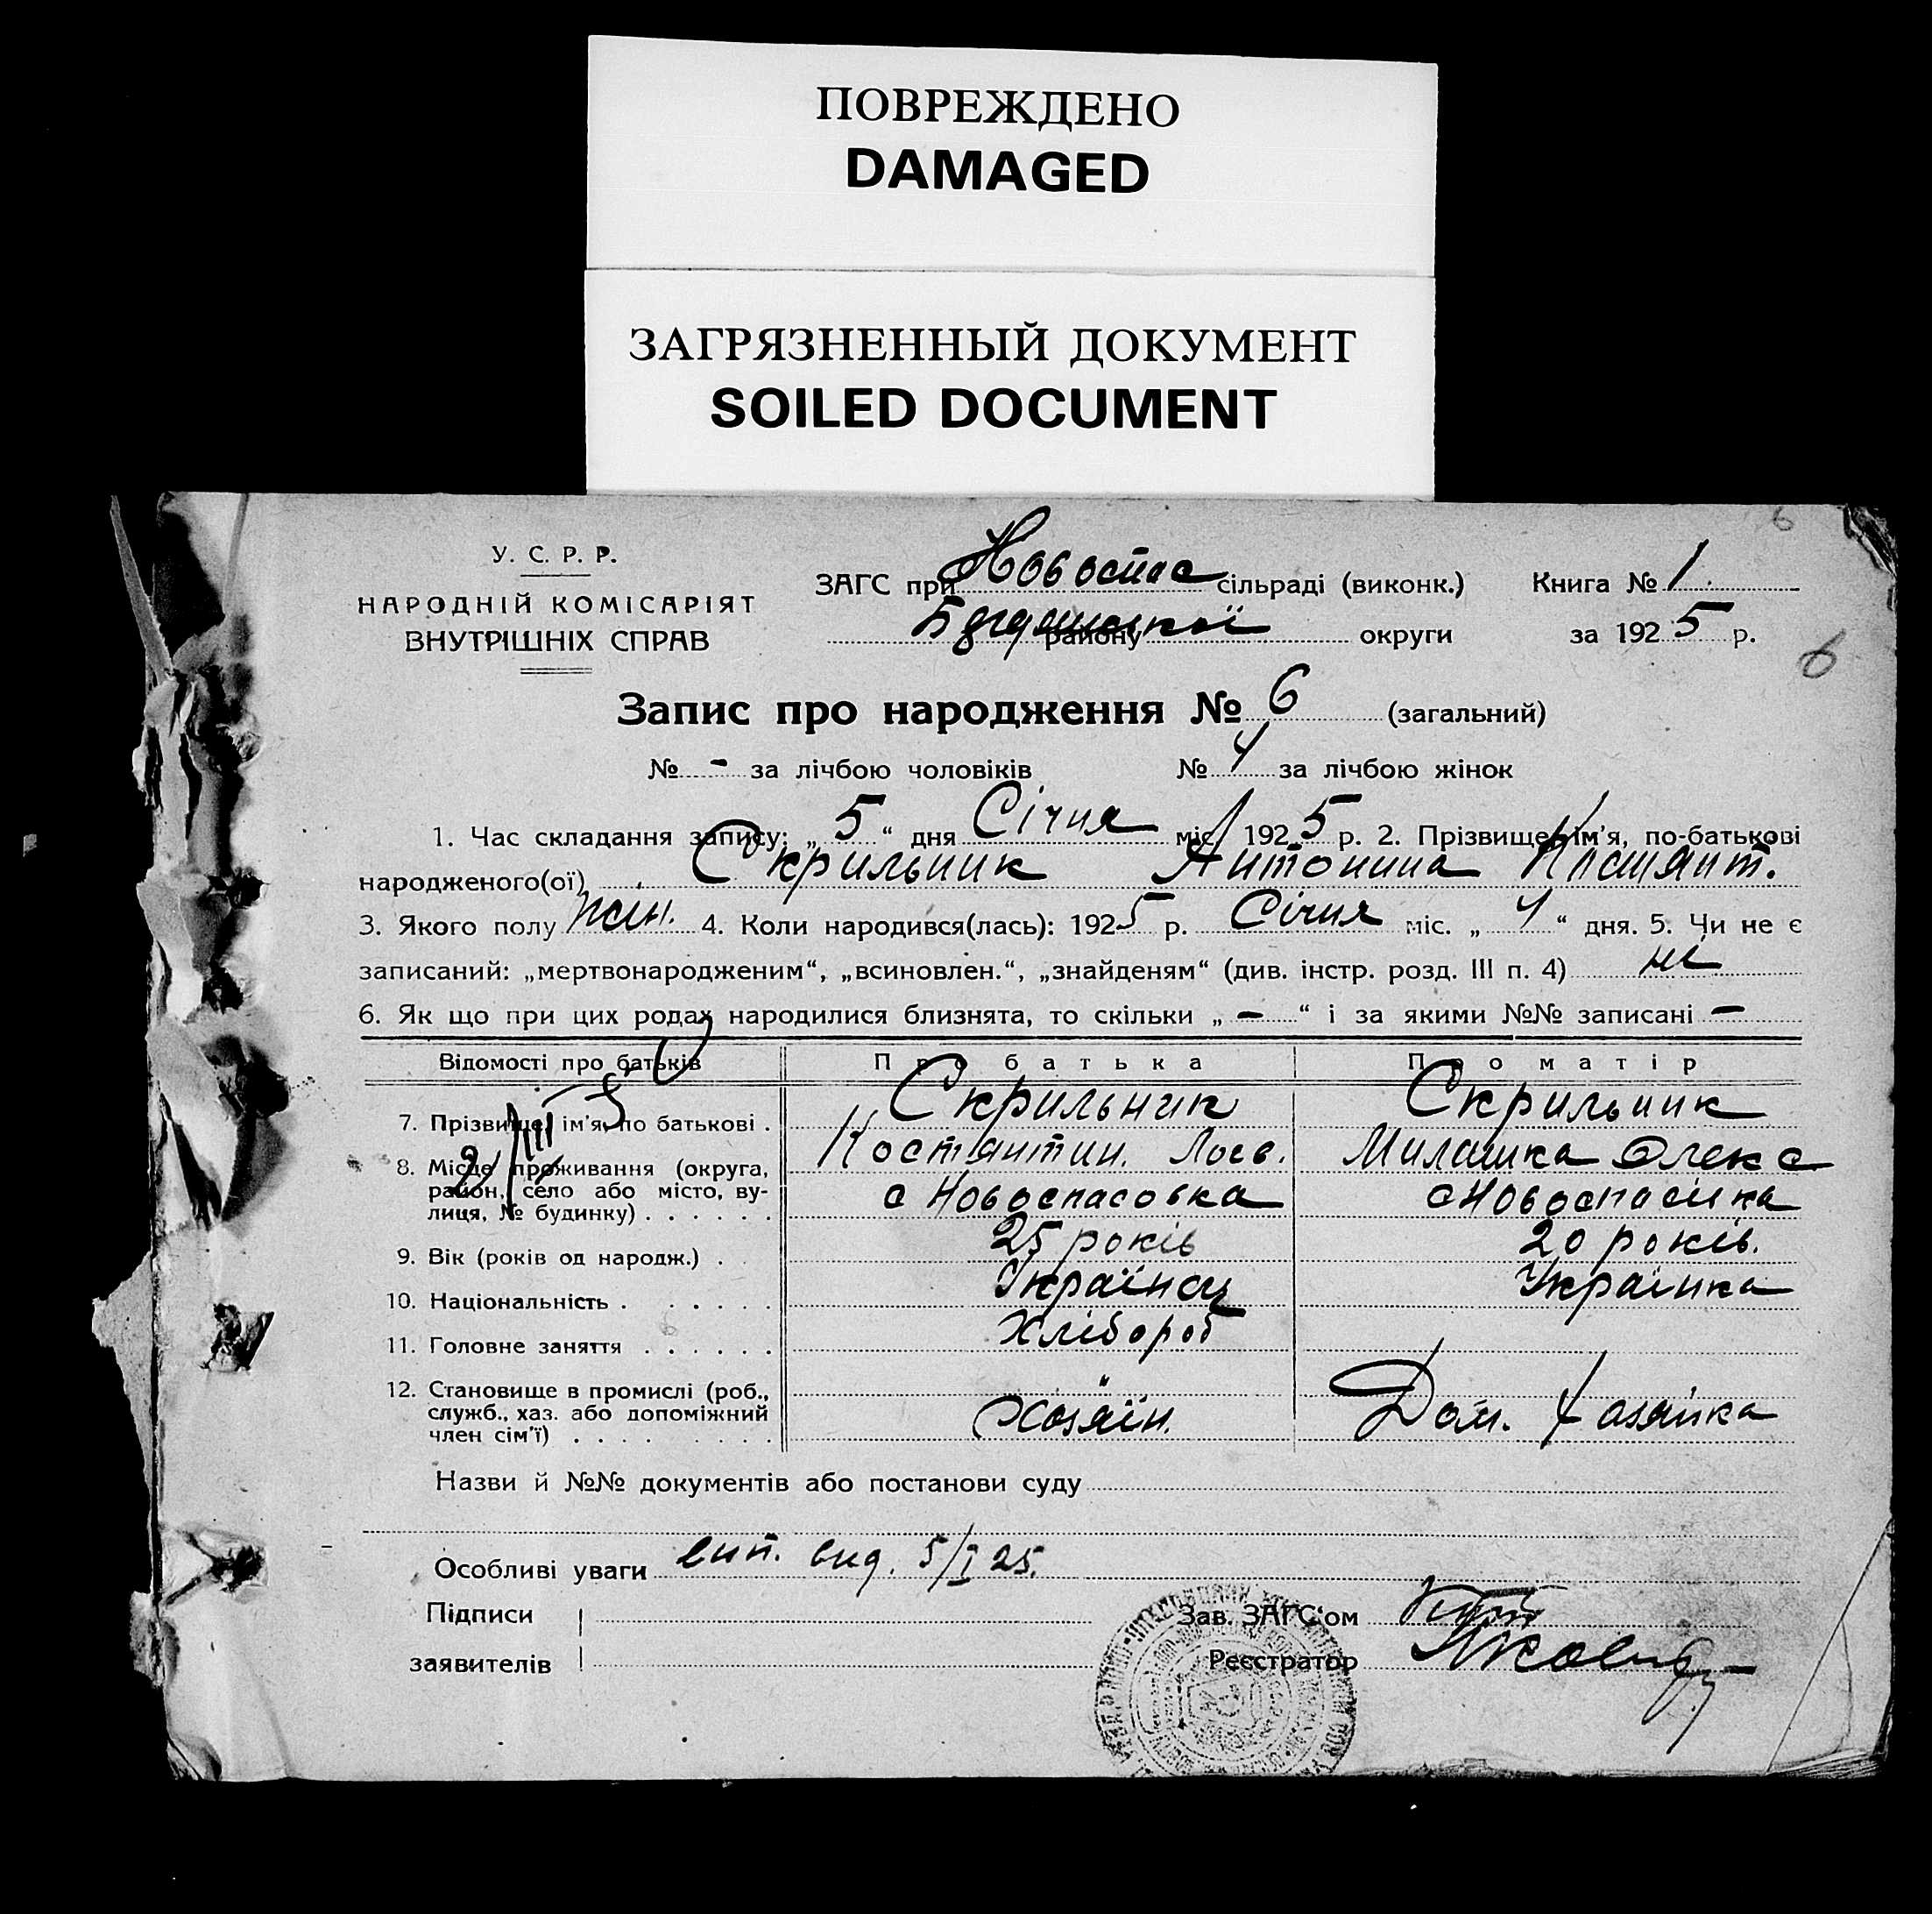 ПОВРЕЖДЕНО
DAMAGED
ЗАГРЯЗНЕННЫЙ ДОКУМЕНТ
SOILED DOCUMENT
У. С. Р. Р.
НАРОДНІЙ КОМІСАРІЯТ
ВНУТРІШНІХ СПРАВ
ЗАГС при Новоспас сільраді (виконк.) Книга № 1
району округи за 1925 р.
6
6
Запис про народження № 6 (загальний)
№ - за лічбою чоловіків № 4 за лічбою жінок
1. Час складання запису: „5“ дня Січня міс. 1925 р. 2. Прізвище, ім'я, по-батькові
народженого(ої) Скрильник Антонина Костянт.
3. Якого полу жін. 4. Коли народився(лась): 1925 р. Січня міс. „4“ дня. 5. Чи не є
записаний: „мертвонародженим“, „всиновлен.“, „знайденям“ (див. інстр. розд. III п. 4) ні
6. Як що при цих родах народилися близнята, то скільки „—“ і за якими №№ записані —
Відомості про батьків Про батька Про матір
7. Прізвище, ім'я, по батькові . Скрильник Скрильник
Костянтин. Милашка Олекс
8. Місце проживання (округа, район, село або місто, ву-
лиця, № будинку) . . . . . . с Новоспасовка с Новоспасівка
9. Вік (років од народж.) . 25 років 20 років.
10. Національність . . . . . . Українец Українка
11. Головне заняття . . . . . . Хлібороб
12. Становище в промислі (роб.,
служб., хаз. або допоміжний
член сім'ї) . . . . . . . . Хозяїн. Дом. Хозяйка
Назви й №№ документів або постанови суду
Особливі уваги вип. вид. 5/I 25.
Підписи Зав. ЗАГС'ом
заявителів Реєстратор